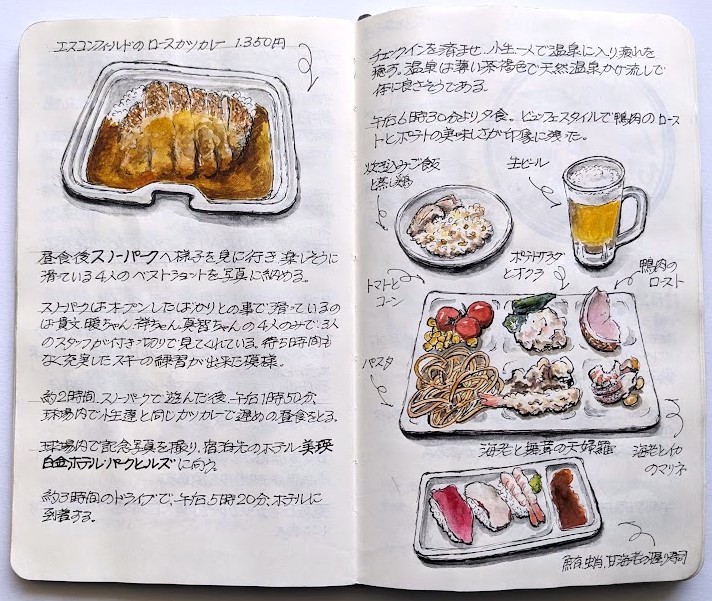 エスコンフィールドのロースカツカレー 1.350円
昼食後スノーパークへ様子を見に行き楽しそうに
滑っている4人のベストショットを写真に納める。
スノーパークはオープンしたばかりとの事で滑っているの
は貴文、暖ちゃん、祥ちゃん、真智ちゃんの4人のみで、3人
のスタッフが付きっきりで見てくれている。待ち時間も
なく充実したスキーの練習が出来た模様。
約2時間、スノーパークで遊んだ後、午后1時50分、
球場内で小生達と同じカツカレーで遅めの昼食をとる。
球場内で記念写真を撮り、宿泊先のホテル美瑛
白金ホテルパークヒルズに向う。
約3時間のドライブで、午后5時20分、ホテルに
到着する。
チェックインを済ませ、小生一人で温泉に入り疲れを
癒す。温泉は薄い茶褐色で天然温泉かけ流しで
体に良さそうである。
午后6時30分より夕食。ビュッフェスタイルで鴨肉のロース
トとポテトの美味しさが印象に残った。
炊き込みご飯
と蒸し鶏
生ビール
トマトと
コーン
ポテトサラダ
とオクラ
鴨肉の
ロースト
パスタ
海老と舞茸の天婦羅
海老とイカ
のマリネ
鮪、蛸、甘海老の握り寿司